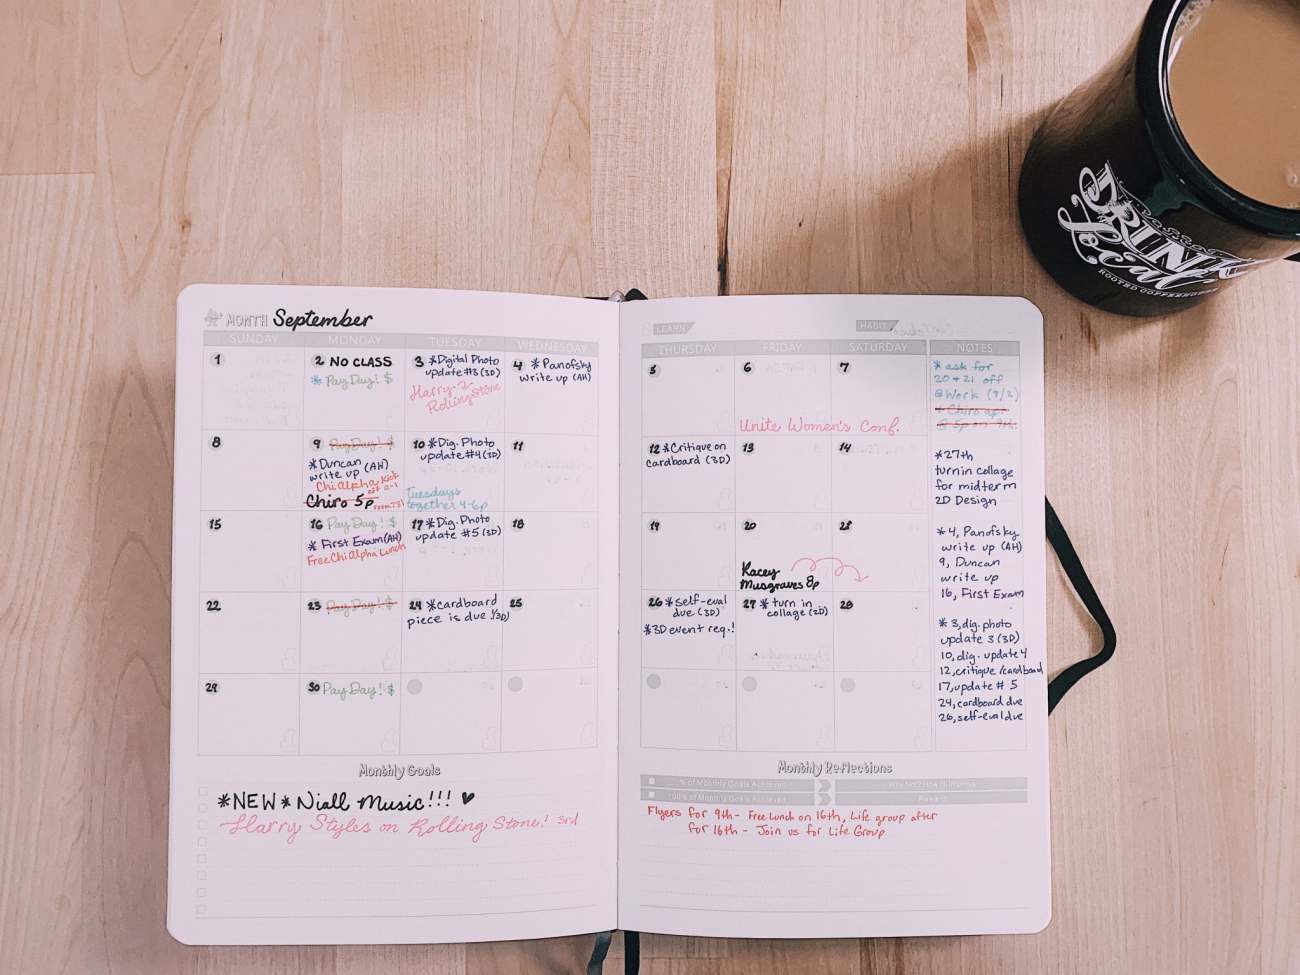 MONTH September
LEARN
HABIT
SUNDAY MONDAY TUESDAY WEDNESDAY
THURSDAY FRIDAY SATURDAY NOTES
1
2 NO CLASS
* Pay Day! $
3 *Digital Photo
update #3 (3D)
Harry
Rolling Stone
4 * Panofsky
write up (AH)
5
6
7
Unite Women's Conf.
8
9 Pay Day! $
*Duncan
write up (AH)
Chi Alpha Kick
Chiro 5p
10 *Dig. Photo
update #4 (3D)
Tuesdays
together 4-6p
11
12 *Critique on
cardboard (3D)
13
14
15
16 Pay Day! $
* First Exam (AH)
Free Chi Alpha Lunch
17 *Dig. Photo
update #5 (3D)
18
19
20
Kacey
Musgraves 8p
21
22
23 Pay Day! $
24 *cardboard
piece is due (3D)
25
26 *self-eval
due (3D)
*3D event req.!
27 * turn in
collage (2D)
28
29
30 Pay Day! $
* ask for
20 + 21 off
@Work (9/2)
* Chiro ap.
@ 5p on 9th.
*27th
turn in collage
for midterm
2D Design
* 4, Panofsky
write up (AH)
9, Duncan
write up
16, First Exam
* 3, dig. photo
update 3 (3D)
10, dig. update 4
12, critique/cardboard
17, update # 5
24, cardboard due
26, self-eval due
Monthly Goals
*NEW* Niall Music!!! ♥
Harry Styles on Rolling Stone! 3rd
Monthly Reflections
% of Monthly Goals Achieved
100% of Monthly Goals Achieved
Reward
Flyers for 9th - Free Lunch on 16th, Life group after
for 16th - Join us for Life Group
DRINK
Local
ROOTED COFFEEHOUSE